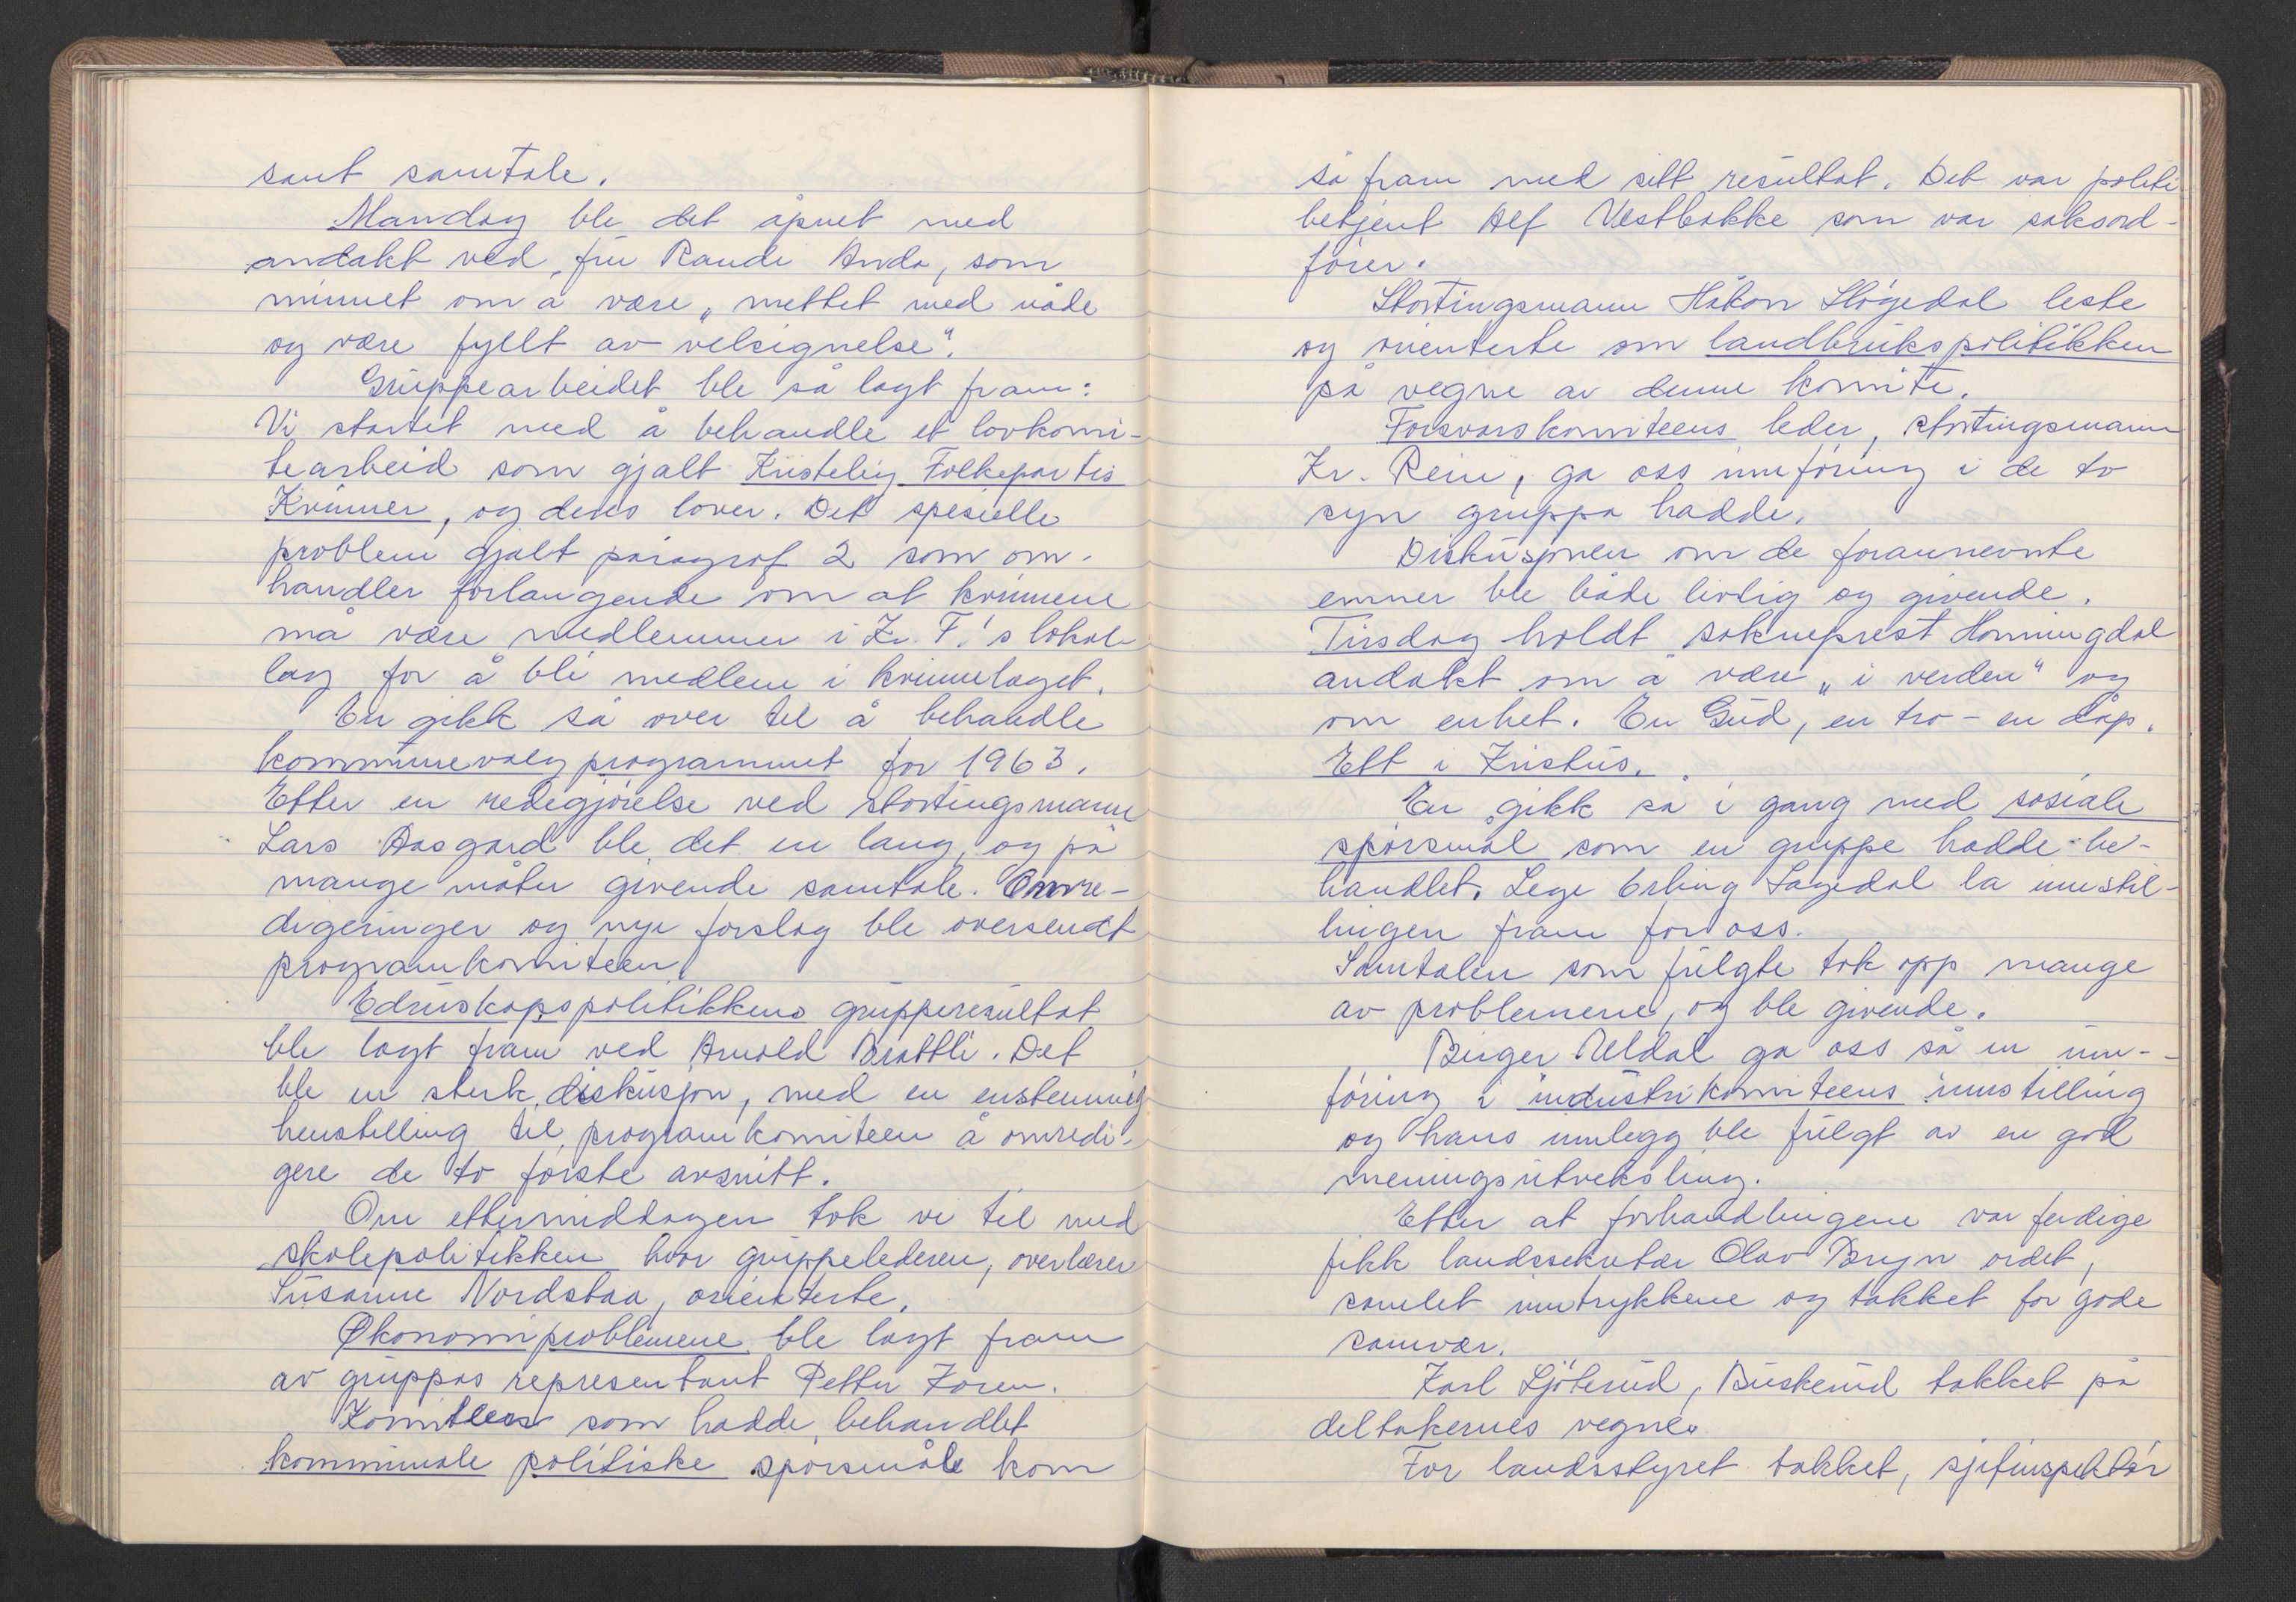 samt samtale.
Mandag ble det åpnet med
andakt ved fru Randi Anda, som
minnet om å være „mettet med nåde
og være fyllt av velsignelse".
Gruppearbeidet ble så lagt fram:
Vi startet med å behandle et lovkomi-
tearbeid som gjalt Kristelig Folkepartis
Kvinner, og deres lover. Det spesielle
problem gjalt paragraf 2 som om-
handler forlangende om at kvinnene
må være medlemmer i Kr. F.'s lokal-
lag for å bli medlem i kvinnelaget.
En gikk så over til å behandle
kommunevalgprogrammet for 1963.
Etter en redegjørelse ved stortingsmann
Lars Aasgard ble det en lang, og på
mange måter givende samtale. Omre-
digeringer og nye forslag ble oversendt
programkomiteen.
Edruskapspolitikkens grupperesultat
ble lagt fram ved Arnold Brattli. Det
ble en sterk diskusjon, med en enstemmig
henstilling til programkomiteen å omredi-
gere de to første avsnitt.
Om ettermiddagen tok vi til med
skolepolitikken hvor gruppelederen, overlærer
Susanne Nordstaa, orienterte.
Økonomiproblemene ble lagt fram
av gruppas representant Petter Zoren.
Komiteen som hadde behandlet
kommunale politiske spørsmål kom
så fram med sitt resultat. Det var politi
betjent Alf Vestbakke som var saksord-
fører.
Stortingsmann Håkon Sløgedal leste
og orienterte om landbrukspolitikken
på vegne av denne komite.
Forsvarskomiteens leder, stortingsmann
Kr. Rein, ga oss innføring i de to
syn gruppa hadde.
Diskusjonen om de forannevnte
emner ble både livlig og givende.
Tirsdag holdt sokneprest Honningdal
andakt om å være „i verden" og
om enhet. En Gud, en tro - en dåp.
Ett i Kristus.
En gikk så i gang med sosiale
spørsmål som en gruppe hadde be-
handlet. Lege Erling Sagedal la innstil-
lingen fram for oss.
Samtalen som fulgte tok opp mange
av problemene, og ble givende.
Birger Uldal ga oss så en inn-
føring i industrikomiteens innstilling
og hans innlegg ble fulgt av en god
meningsutveksling.
Etter at forhandlingene var ferdige
fikk landssekretær Olav Bryn ordet,
samlet inntrykkene og takket for gode
samvær.
Karl Ljøterud, Buskerud takket på
deltakernes vegne.
For landsstyret takket, sjefinspektør